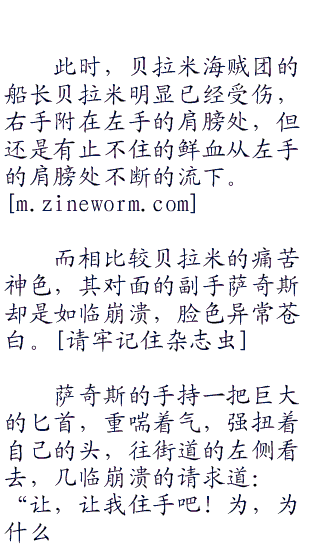 此时，贝拉米海贼团的
船长贝拉米明显已经受伤，
右手附在左手的肩膀处，但
还是有止不住的鲜血从左手
的肩膀处不断的流下。
[m.zineworm.com]
而相比较贝拉米的痛苦
神色，其对面的副手萨奇斯
却是如临崩溃，脸色异常苍
白。[请牢记住杂志虫]
萨奇斯的手持一把巨大
的匕首，重喘着气，强扭着
自己的头，往街道的左侧看
去，几临崩溃的请求道：
“让，让我住手吧！为，为
什么